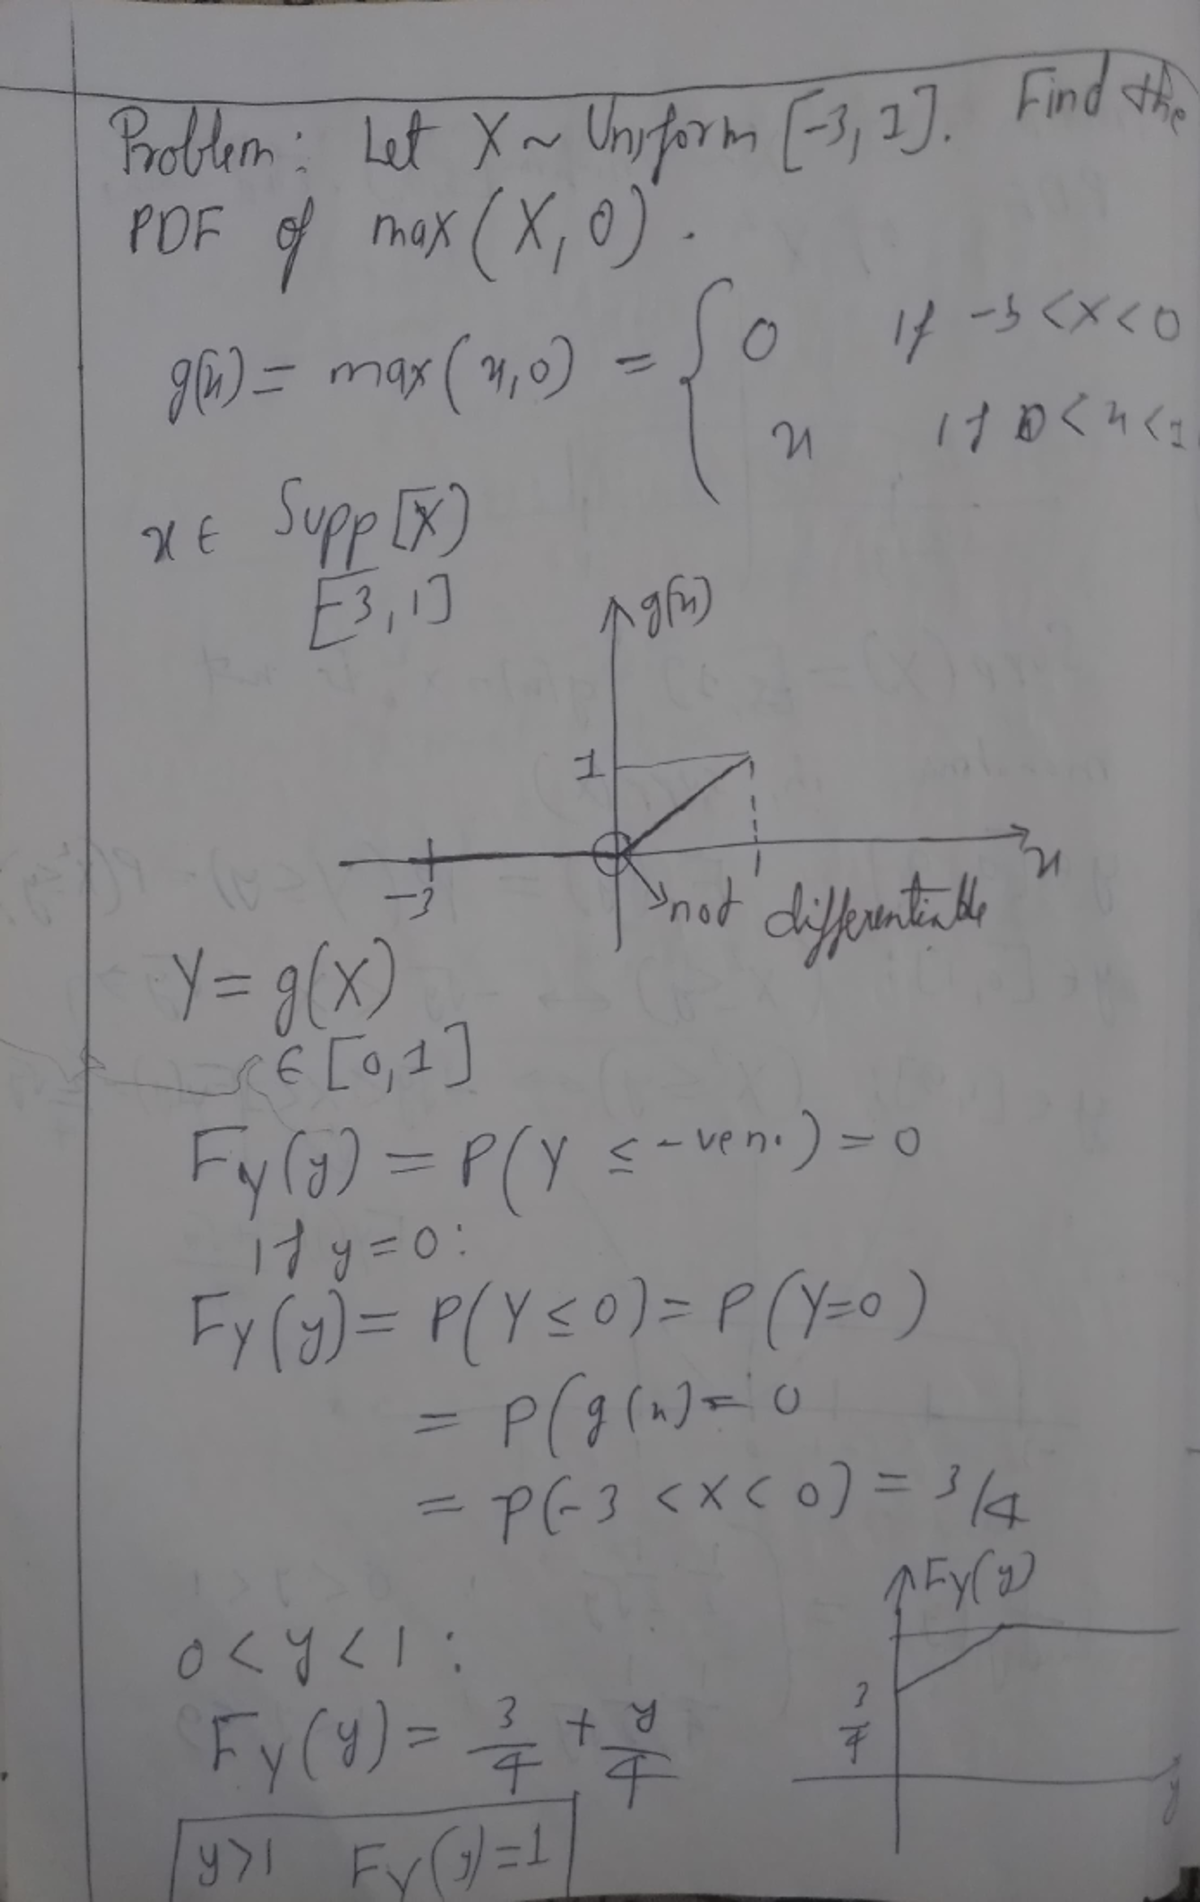 Problem: Let X ~ Uniform [-3, 1]. Find the
PDF of max(X, 0).
g(x) = max(x, 0) = { 0 if -3 < x < 0
x if 0 < x < 1
x ∈ Supp [X)
[-3, 1]
g(x)
1
-3
x
not differentiable
Y = g(X)
∈ [0, 1]
F_Y(y) = P(Y ≤ -ve n.) = 0
if y = 0:
F_Y(y) = P(Y ≤ 0) = P(Y=0)
= P(g(x) = 0
= P(-3 < X < 0) = 3/4
F_Y(y)
0 < y < 1:
3/4
F_Y(y) = 3/4 + y/4
y
y>1 F_Y(y) = 1